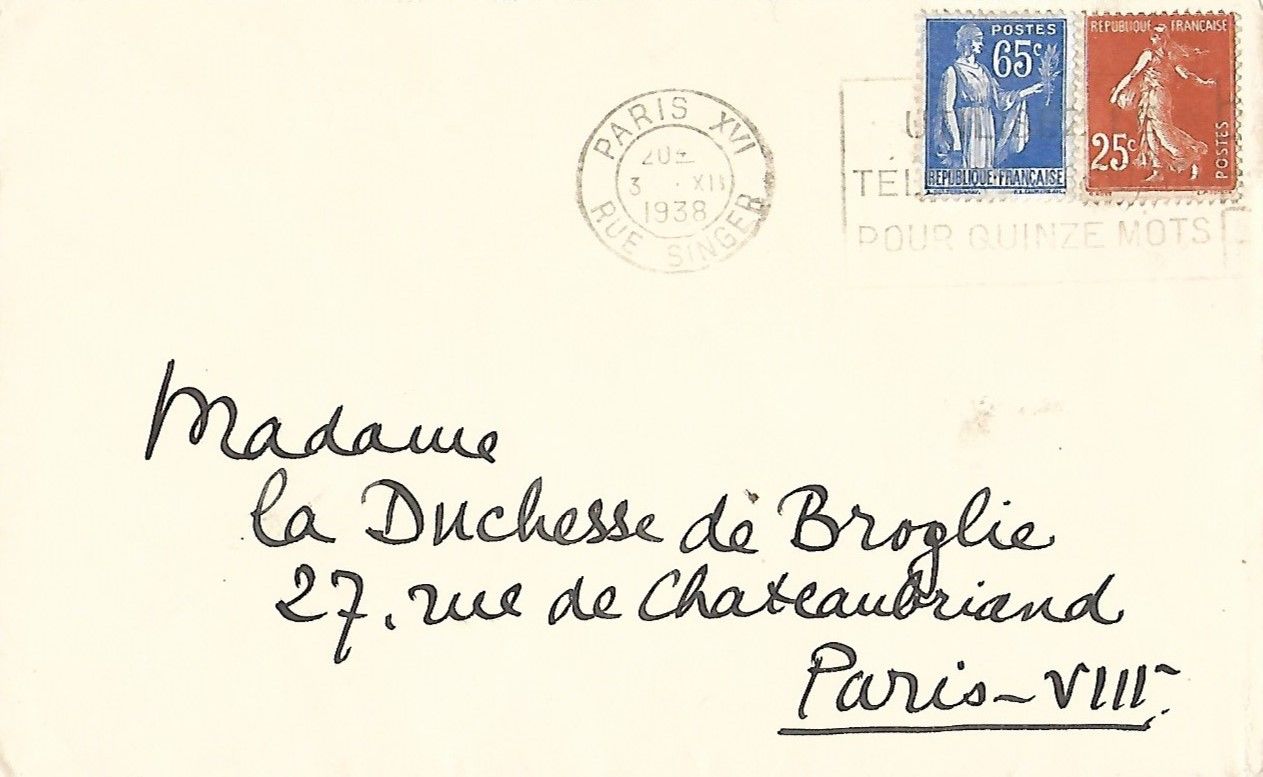 POSTES
65c
REPUBLIQUE FRANÇAISE
REPUBLIQUE FRANÇAISE
25c
POSTES
PARIS XVI
3 XII
1938
RUE SINGER
POUR QUINZE MOTS
Madame
la Duchesse de Broglie
27, rue de Chateaubriand
Paris - VIII